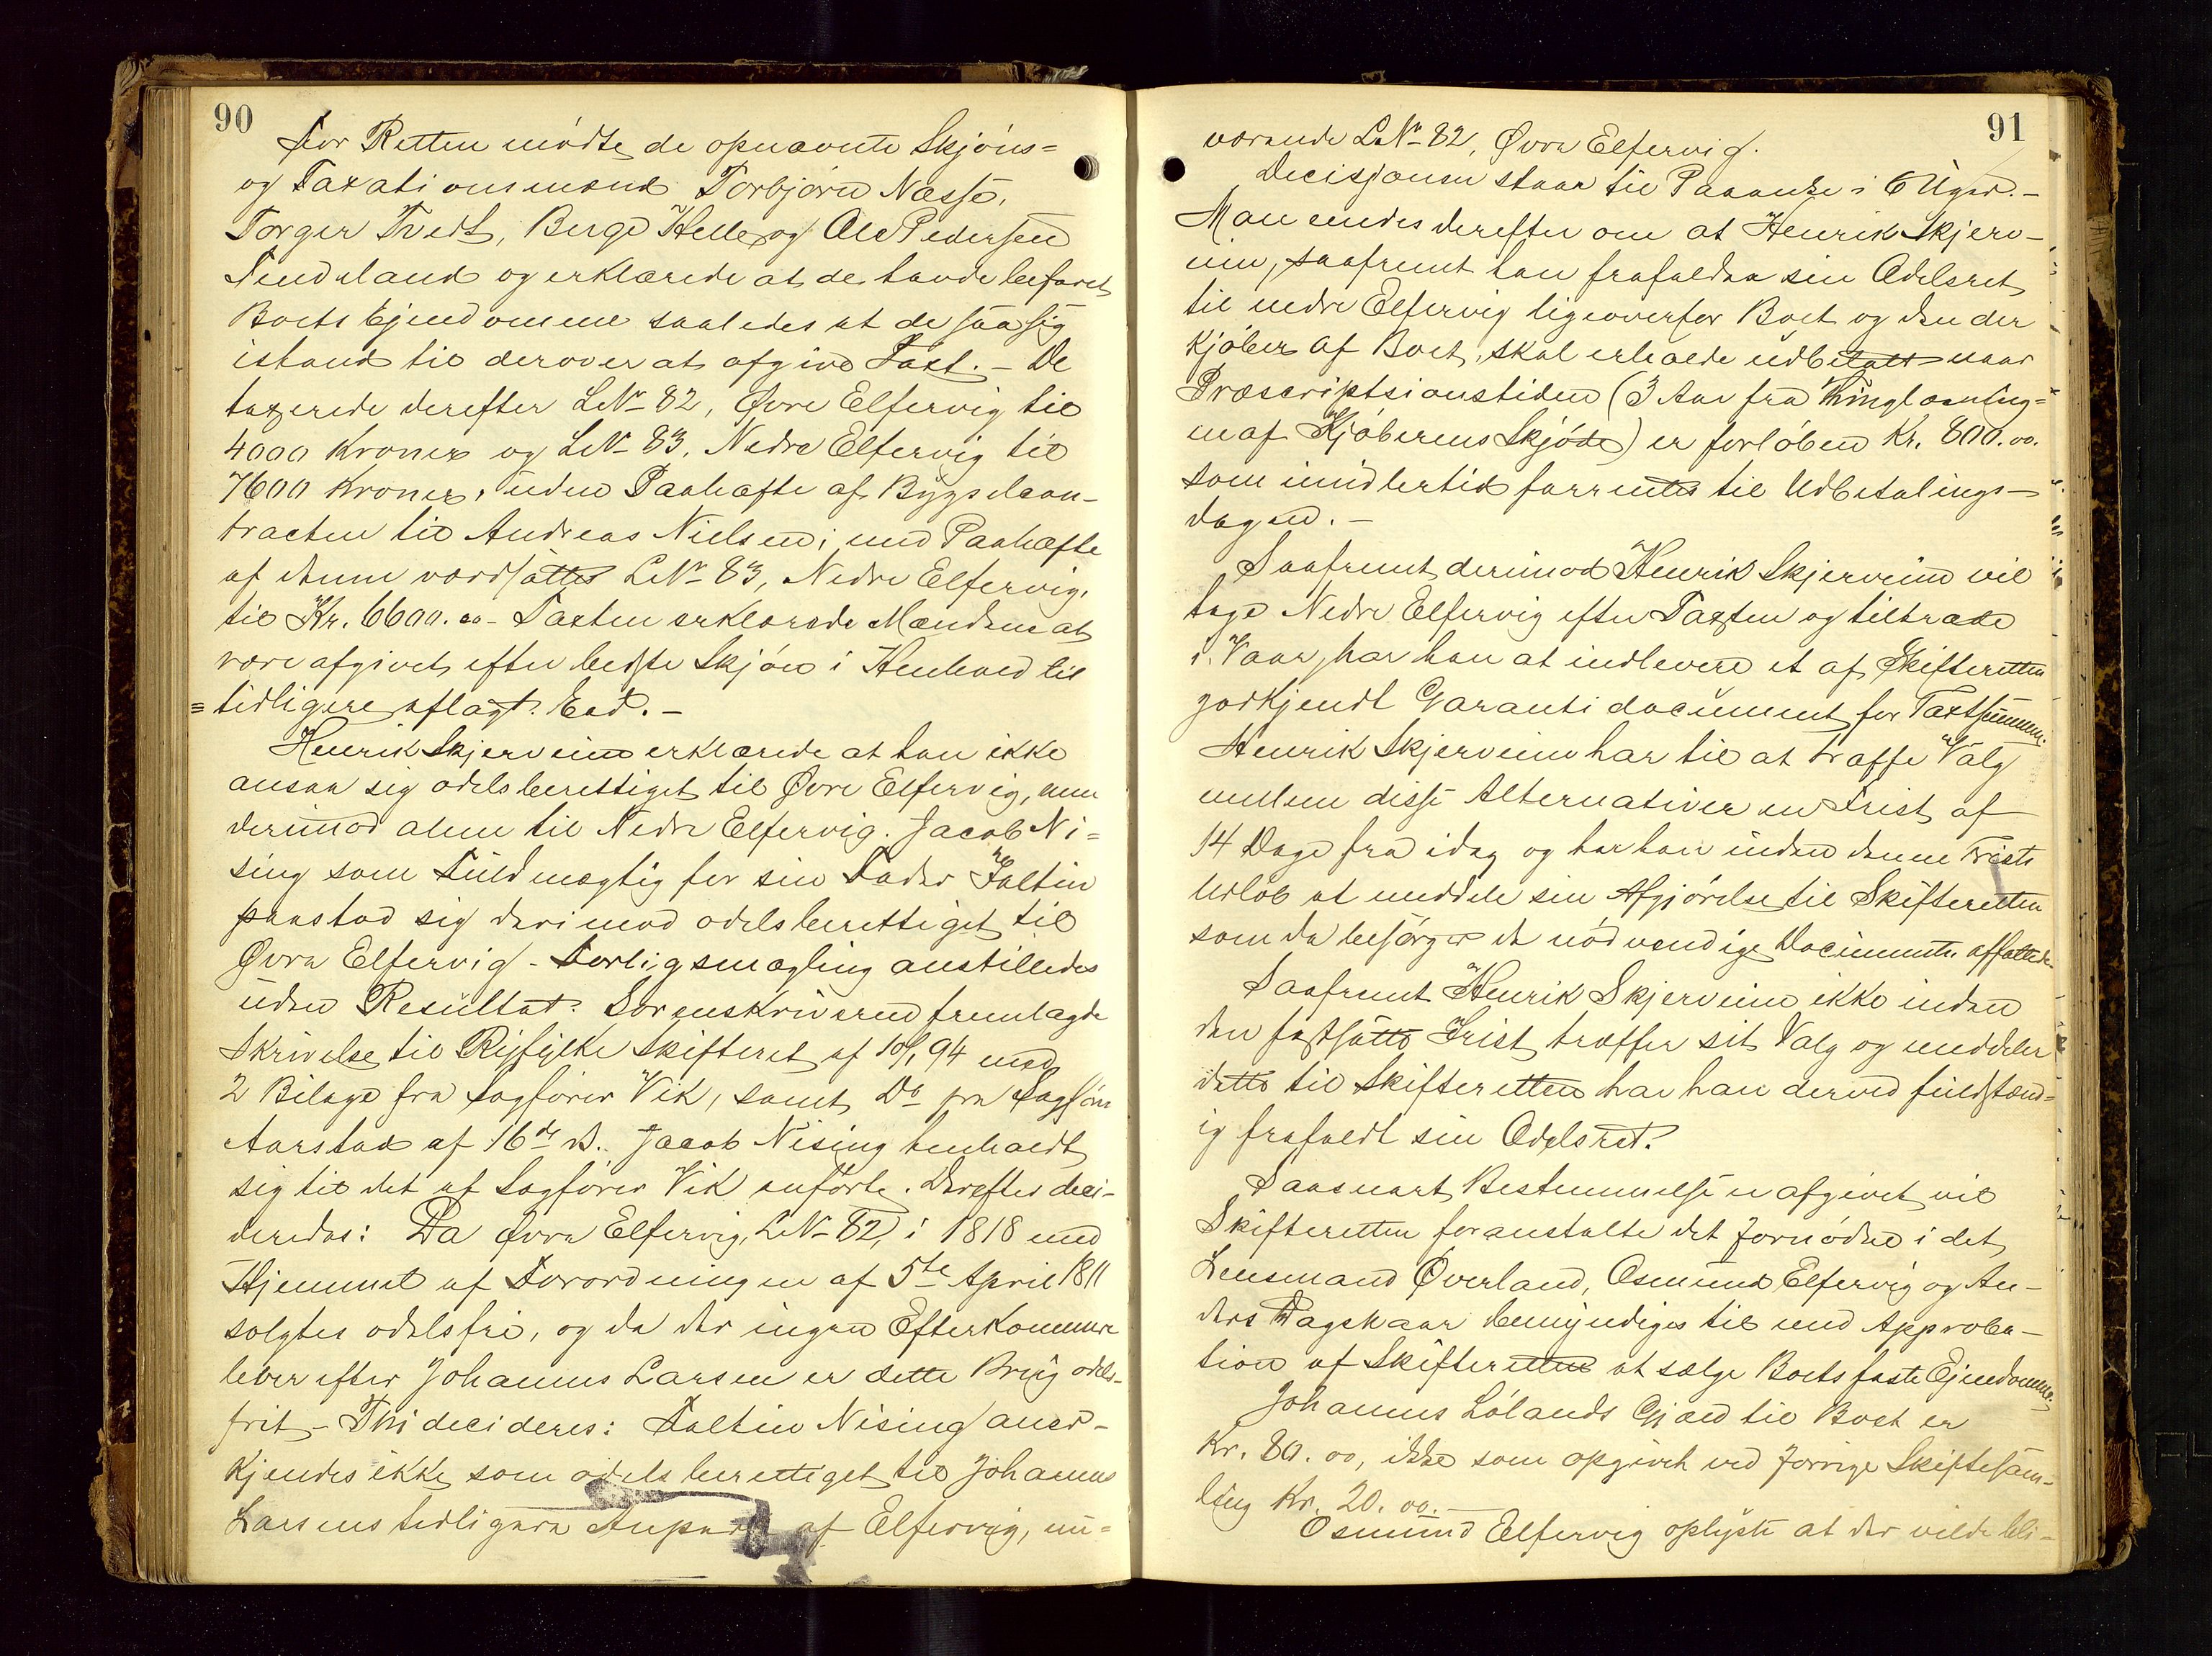 90
For Retten mødte de opnævnte Skjøns-
og Taxationsmænd Torbjørn Næsse,
Torger Tvedt, Berge Helle og Ole Pedersen
Tindeland og erklærede at de havde befaret
Boets Ejendomme saaledes at de saa sig
istand til derover at afgive Taxt. – De
taxerede derefter LNr 82, Øvre Elfervig til
4000 Kroner og LNr 83, Nedre Elfervig til
7600 Kroner, uden Paahæfte af Bygselcon-
tracten til Andreas Nielsen; med Paahæfte
af denne værdsattes LNr 83, Nedre Elfervig,
til Kr. 6600.00 – Taxten erklærede Mændene at
være afgivet efter bedste Skjøn i Henhold til
tidligere aflagt Eed. –
Henrik Skjerveim erklærede at han ikke
ansaa sig odelsberettiget til Øvre Elfervig, men
derimod alene til Nedre Elfervig. Jacob Ni-
sing som Fuldmægtig for sin Fader Faltin
paastod sig derimod odelsberettiget til
Øvre Elfervig – Forligsmægling anstilledes
uden Resultat. Sorenskriveren fremlagde
Skrivelse til Ryfylke Skifteret af 10/1 94 med
2 Bilage fra Sagfører Vik, samt Do fra Sagfører
Aarstad af 16de ds. Jacob Nising henholdt
sig til det af Sagfører Vik anførte. Derefter deci-
deredes: Da Øvre Elfervig, LNr 82, i 1818 med
Hjemmel af Forordningen af 5te April 1811
solgtes odelsfri, og da der ingen Efterkommere
lever efter Johannes Larsen er dette Brug odels-
frit – Thi decideres: Faltin Nising aner-
kjendes ikke som odelsberettiget til Johannes
Larsens tidligere Anpart af Elfervig, nu-
91
værende LNr 82, Øvre Elfervig.
Decisjonen staar til Paaanke i 6 Uger. –
Man enedes derefter om at Henrik Skjerv-
eim, saafremt han frafalder sin Odelsret
til nedre Elfervig ligeoverfor Boet og den der
kjøber af Boet, skal erholde udbetalt naar
Præscriptsionstiden (3 Aar fra Thinglæsning-
en af Kjøberens Skjøde) er forløben Kr. 800.00.
som imidlertid forrentes til Udbetalings-
dagen. –
Saafremt derimod Henrik Skjerveim vil
tage Nedre Elfervig efter Taxten og tiltræde
i Vaar, har han at indlevere et af Skifteretten
godkjendt Garantidocument for Taxtsummen.
Henrik Skjerveim har til at træffe Valg
mellem disse Alternativer en Frist af
14 Dage fra idag og har han inden denne Frists
Udløb at meddele sin Afgjørelse til Skifteretten
som da besørger de nødvendige Documenter affattede.
Saafremt Henrik Skjerveim ikke inden
den fastsatte Frist træffer sit Valg og meddeler
dette til Skifteretten har han derved fuldstænd-
ig frafaldt sin Odelsret.
Saasnart Bestemmelse er afgivet vil
Skifteretten foranstalte det fornødne i det
Lensmand Øverland, Osmund Elfervig og An-
ders Dagsnaar bemyndiges til med Approba-
tion af Skifteretten at sælge Boets faste Ejendomme.
Johannes Lølands Gjæld til Boet er
Kr. 80.00, ikke som opgivet ved forrige Skiftesam-
ling Kr. 20.00. –
Osmund Elfervig oplyste at der vilde bli-